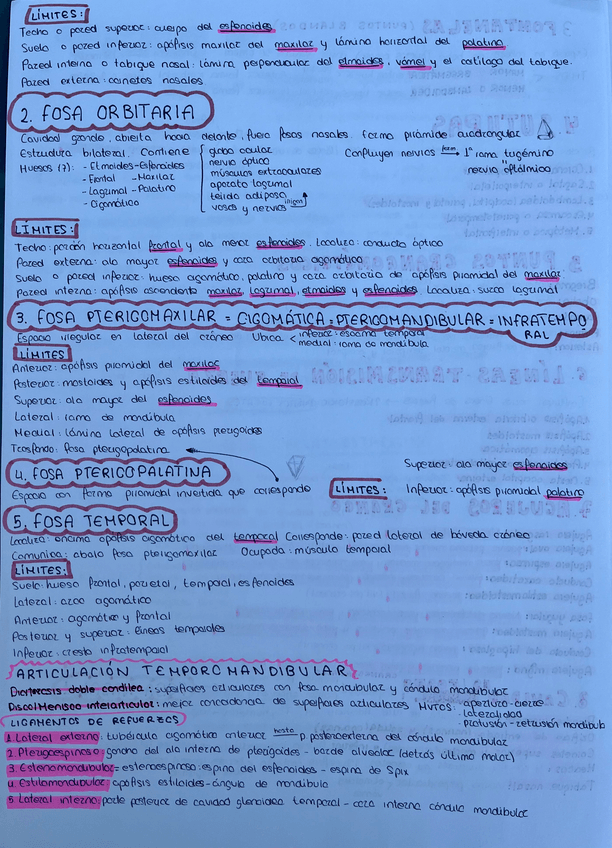 LÍMITES:
Techo o pared superior: cuerpo del esfenoides
Suelo o pared inferior: apófisis maxilar del maxilar y lámina horizontal del palatino
Pared interna o tabique nasal: lámina perpendicular del etmoides, vómer y el cartílago del tabique.
Pared externa: cornetes nasales
2. FOSA ORBITARIA
Cavidad grande, abierta hacia delante, fuera fosas nasales. forma pirámide cuadrangular
Estructura bilateral. Contiene
globo ocular
nervio óptico
músculos extraoculares
aparato lagrimal
tejido adiposo
vasos y nervios irrigan
Confluyen nervios → 1ª rama trigémino
nervio oftálmico
Huesos (7): - Etmoides - Esfenoides
- Frontal - Maxilar
- Lagrimal - Palatino
- Cigomático
LÍMITES:
Techo: porción horizontal frontal y ala menor esfenoides. Localiza: conducto óptico
Pared externa: ala mayor esfenoides y cara orbitaria cigomático
Suelo o pared inferior: hueso cigomático, palatino y cara orbitaria de apófisis piramidal del maxilar
Pared interna: apófisis ascendente maxilar, lagrimal, etmoides y esfenoides. Localiza: surco lagrimal
3. FOSA PTERIGOMAXILAR = CIGOMÁTICA = PTERIGOMANDIBULAR = INFRATEMPORAL
Espacio irregular en lateral del cráneo Ubica < inferior: escama temporal
medial: rama de mandíbula
LÍMITES
Anterior: apófisis piramidal del maxilar
Posterior: mastoides y apófisis estiloides del temporal
Superior: ala mayor del esfenoides
Lateral: rama de mandíbula
Medial: lámina lateral de apófisis pterigoides
Trasfondo: fosa pterigopalatina
4. FOSA PTERIGOPALATINA
Espacio con forma piramidal invertida que corresponde
LÍMITES:
Superior: ala mayor esfenoides
Inferior: apófisis piramidal palatino
5. FOSA TEMPORAL
Localiza: encima apófisis cigomática del temporal Corresponde: pared lateral de bóveda cráneo
Comunica: abajo fosa pterigomaxilar Ocupada: músculo temporal
LÍMITES:
Suelo: hueso frontal, parietal, temporal, esfenoides
Lateral: arco cigomático
Anterior: cigomático y frontal
Posterior y superior: líneas temporales
Inferior: cresta infratemporal
ARTICULACIÓN TEMPOROMANDIBULAR
Diartrosis doble condílea: superficies articulares con fosa mandibular y cóndilo mandibular
Disco/Menisco interarticular: mejor concordancia de superficies articulares Mvtos - apertura-cierre
- lateralidad
- protusión-retrusión mandíbula
LIGAMENTOS DE REFUERZOS
1. Lateral externo: tubérculo cigomático anterior hasta p. posteroexterna del cóndilo mandibular
2. Pterigoespinoso: gancho del ala interna de pterigoides - borde alveolar (detrás último molar)
3. Esfenomandibular = esfenoespinoso: espina del esfenoides - espina de Spix
4. Estilomandibular: apófisis estiloides - ángulo de mandíbula
5. Lateral interno: parte posterior de cavidad glenoidea temporal - cara interna cóndilo mandibular